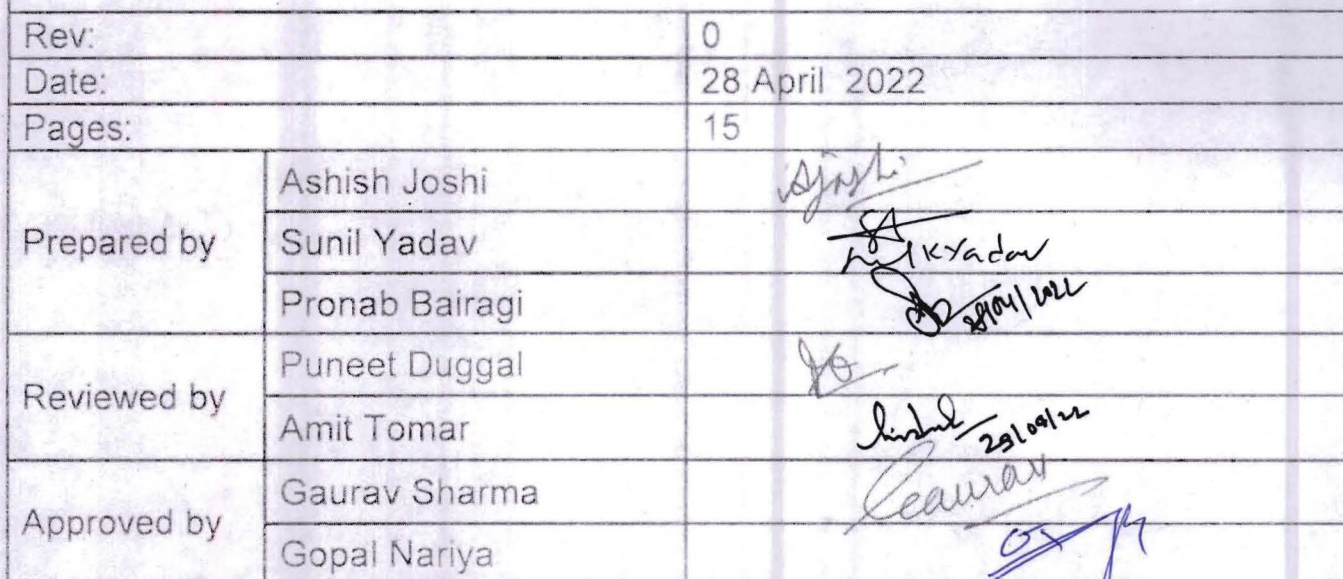 Rev: 0
Date: 28 April 2022
Pages: 15
Prepared by
Ashish Joshi AJoshi
Sunil Yadav KYadav
Pronab Bairagi 28/04/2022
Reviewed by
Puneet Duggal
Amit Tomar
Approved by
Gaurav Sharma Gaurav
Gopal Nariya